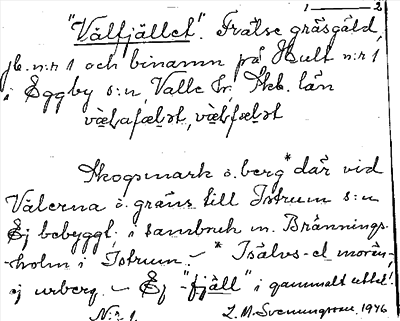 1 — 2
"Välfjället". Frälse gräsgäld,
jb. n:r 1 och binamn på Hult n:r 1
i Eggby s:n, Valle hr, Skb. län
Skogsmark o. berg* där vid
Välerna ö. gräns till Istrum s:n
Ej bebyggt. i sambruk m. Brännings-
holm i Istrum. — * Isälvs- el. morän-,
ej urberg. — Ej "fjäll" i gammalt uttal!
N:r 1. L. M. Svenungsson 1946